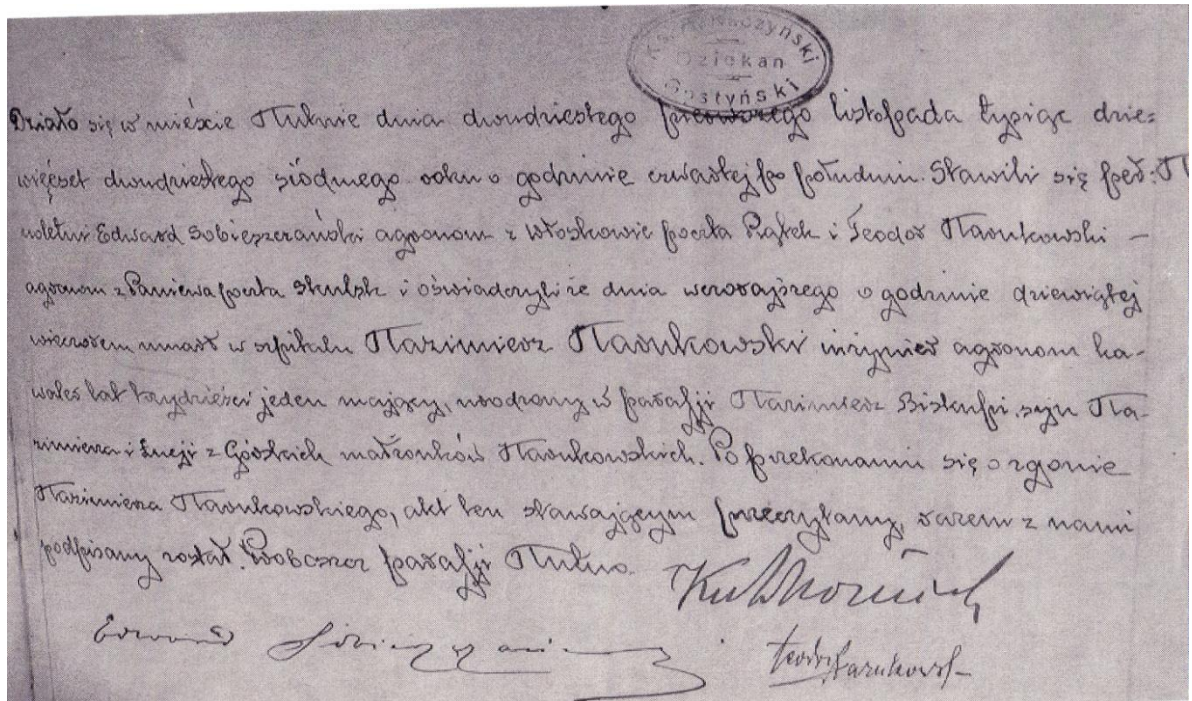 Dziekan
Gostyński
Działo się w mieście Kutnie dnia dwudziestego pierwszego listopada tysiąc dzie=
więćset dwudziestego siódmego roku o godzinie czwartej po południu. Stawili się peł=
noletni Edward Sobieszczański agronom z Włoskowic poczta Piątek i Teodor Karnkowski —
agronom z Paniewa poczta Skulsk i oświadczyli że dnia wczorajszego o godzinie dziewiątej
wieczorem umarł w szpitalu Kazimierz Karnkowski inżynier agronom ka-
waler lat trzydzieści jeden mający, urodzony w parafji Kazimierz Biskupi, syn Ka-
zimierza i Łucji z Górskich małżonków Karnkowskich. Po przekonaniu się o zgonie
Kazimierza Karnkowskiego, akt ten stawającym przeczytany, razem z nami
podpisany został. Proboszcz parafji Kutno.
Edward Sobieszczański
Teodor Karnkowski